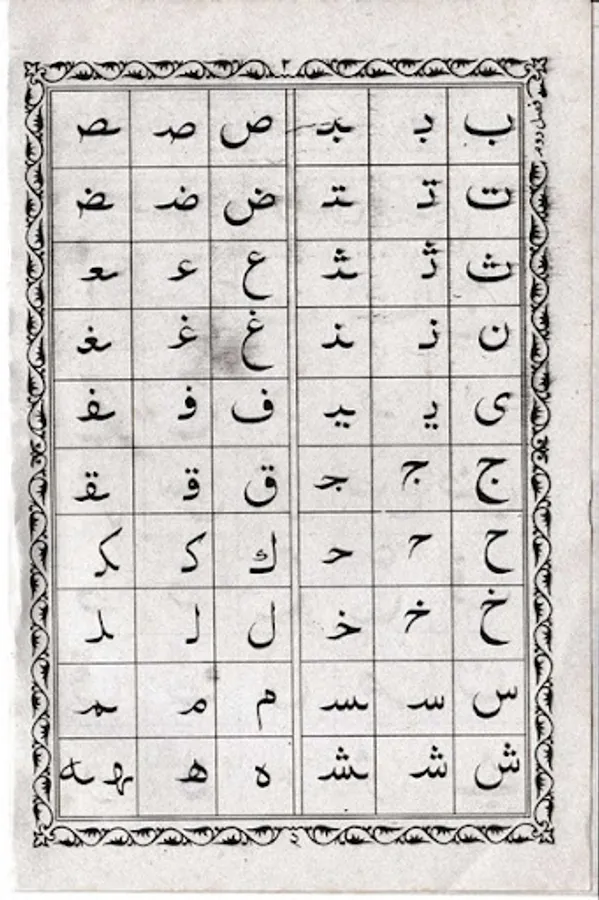 ۲
فصل دوم
ب بـ ـبـ ص صـ ـصـ
ت تـ ـتـ ض ضـ ـضـ
ث ثـ ـثـ ع عـ ـعـ
ن نـ ـنـ غ غـ ـغـ
ى يـ ـيـ ف فـ ـفـ
ج جـ ـجـ ق قـ ـقـ
ح حـ ـحـ ك كـ ـكـ
خ خـ ـخـ ل لـ ـلـ
س سـ ـسـ م مـ ـمـ
ش شـ ـشـ ه هـ ـهـ ـه